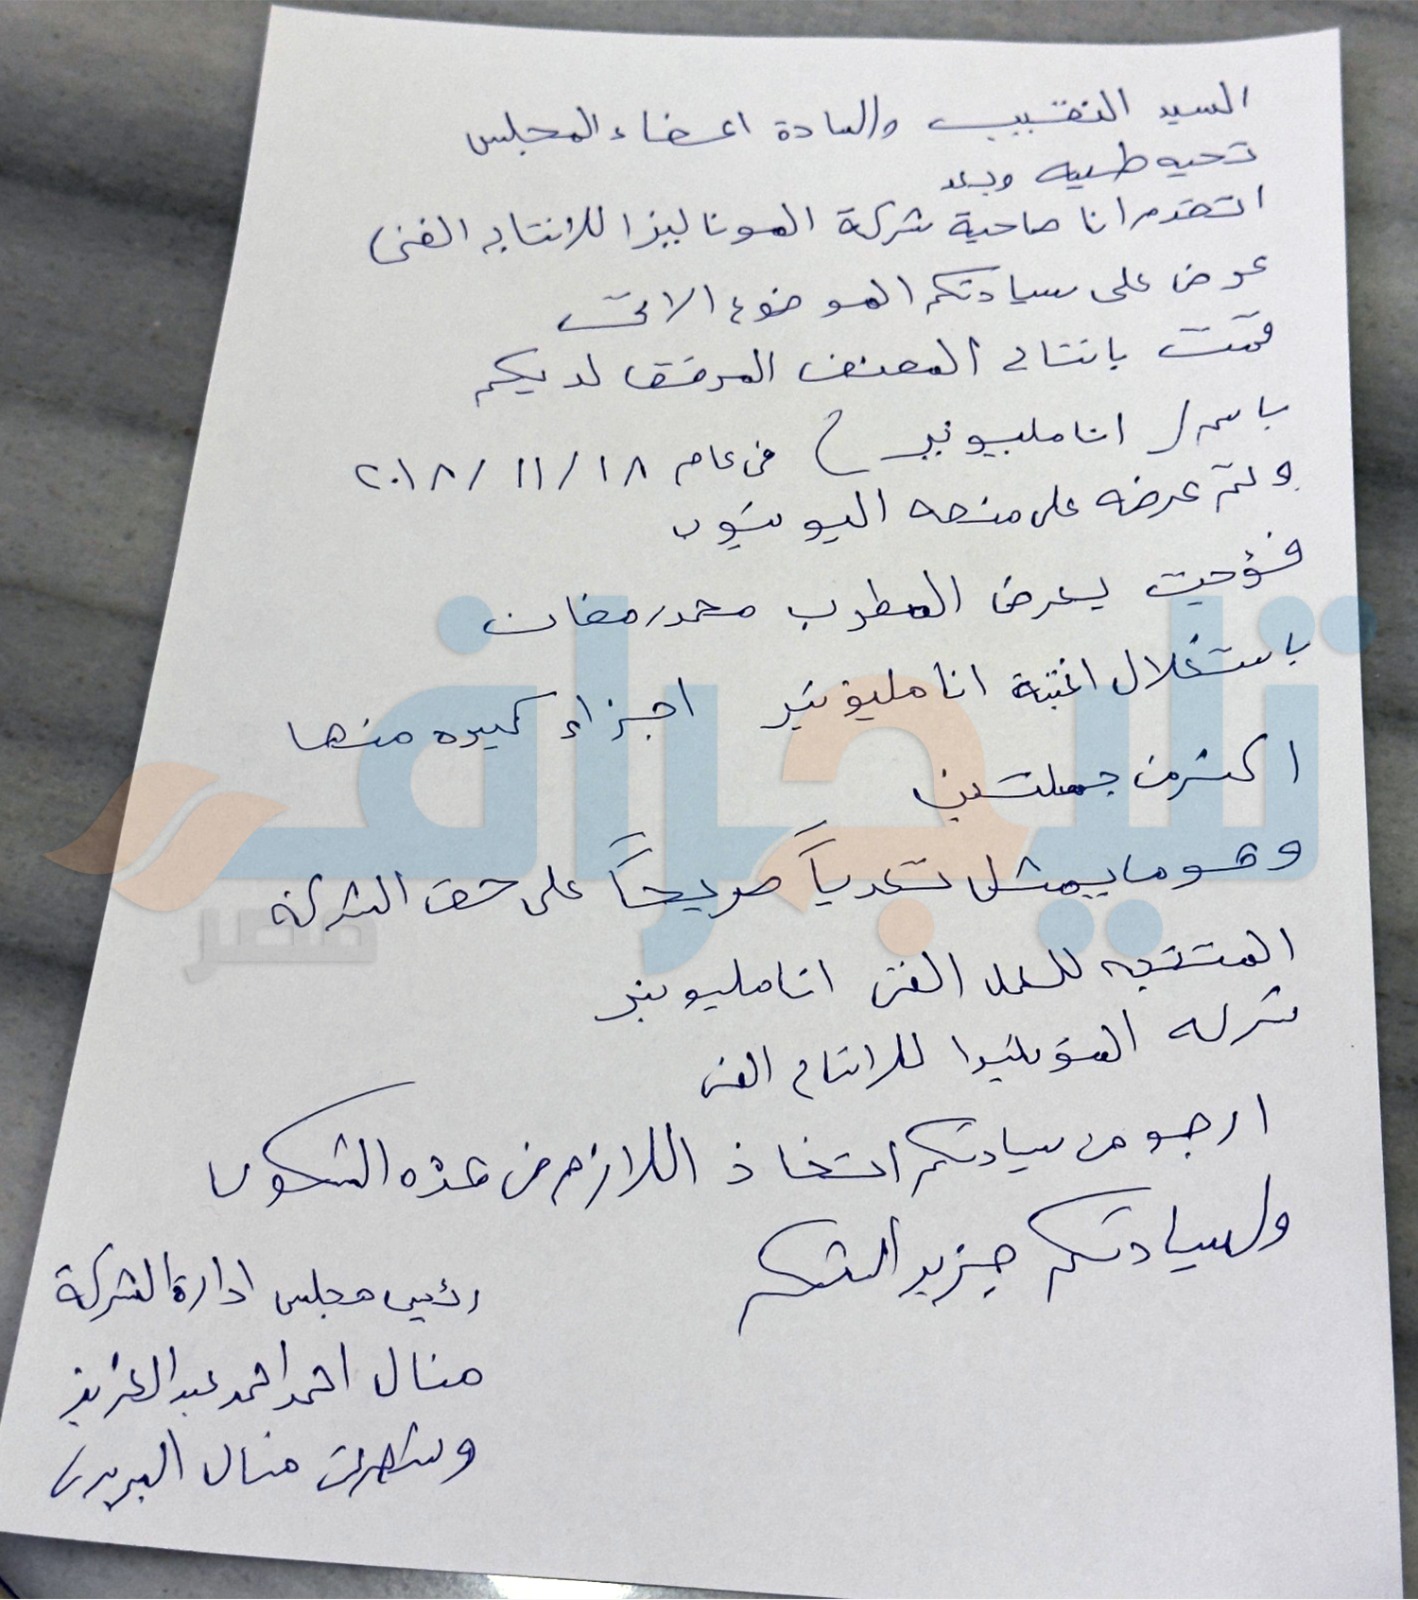 السيد النقيب والسادة اعضاء المجلس
تحيه طيبه وبعد
اتقدم انا صاحبة شركة الموناليزا للانتاج الفنى
عرض على سيادتكم الموضوع الاتى
قمت بانتاج المصنف المرفق لديكم
باسم / انا مليونير ) فى عام ١٨ / ١١ / ٢٠١٨
وتم عرضه على منصه اليوتيوب
فؤجيت بعرض المطرب محمد رمضان
باستغلال اغنية انا مليونير اجزاء كبيره منها
اكثر من جملتين
وهو ما يمثل تعدياً صريحاً على حق الشركة
المنتجه للعمل الفنى انا مليونير
شركه الموناليزا للانتاج الفنى
ارجو من سيادتكم اتخاذ اللازم فى هذه الشكوى
ولسيادتكم جزيد الشكر
رئيس مجلس ادارة الشركة
منال احمد احمد عبد العزيز
وشهرتى منال
تليجراف
مصر